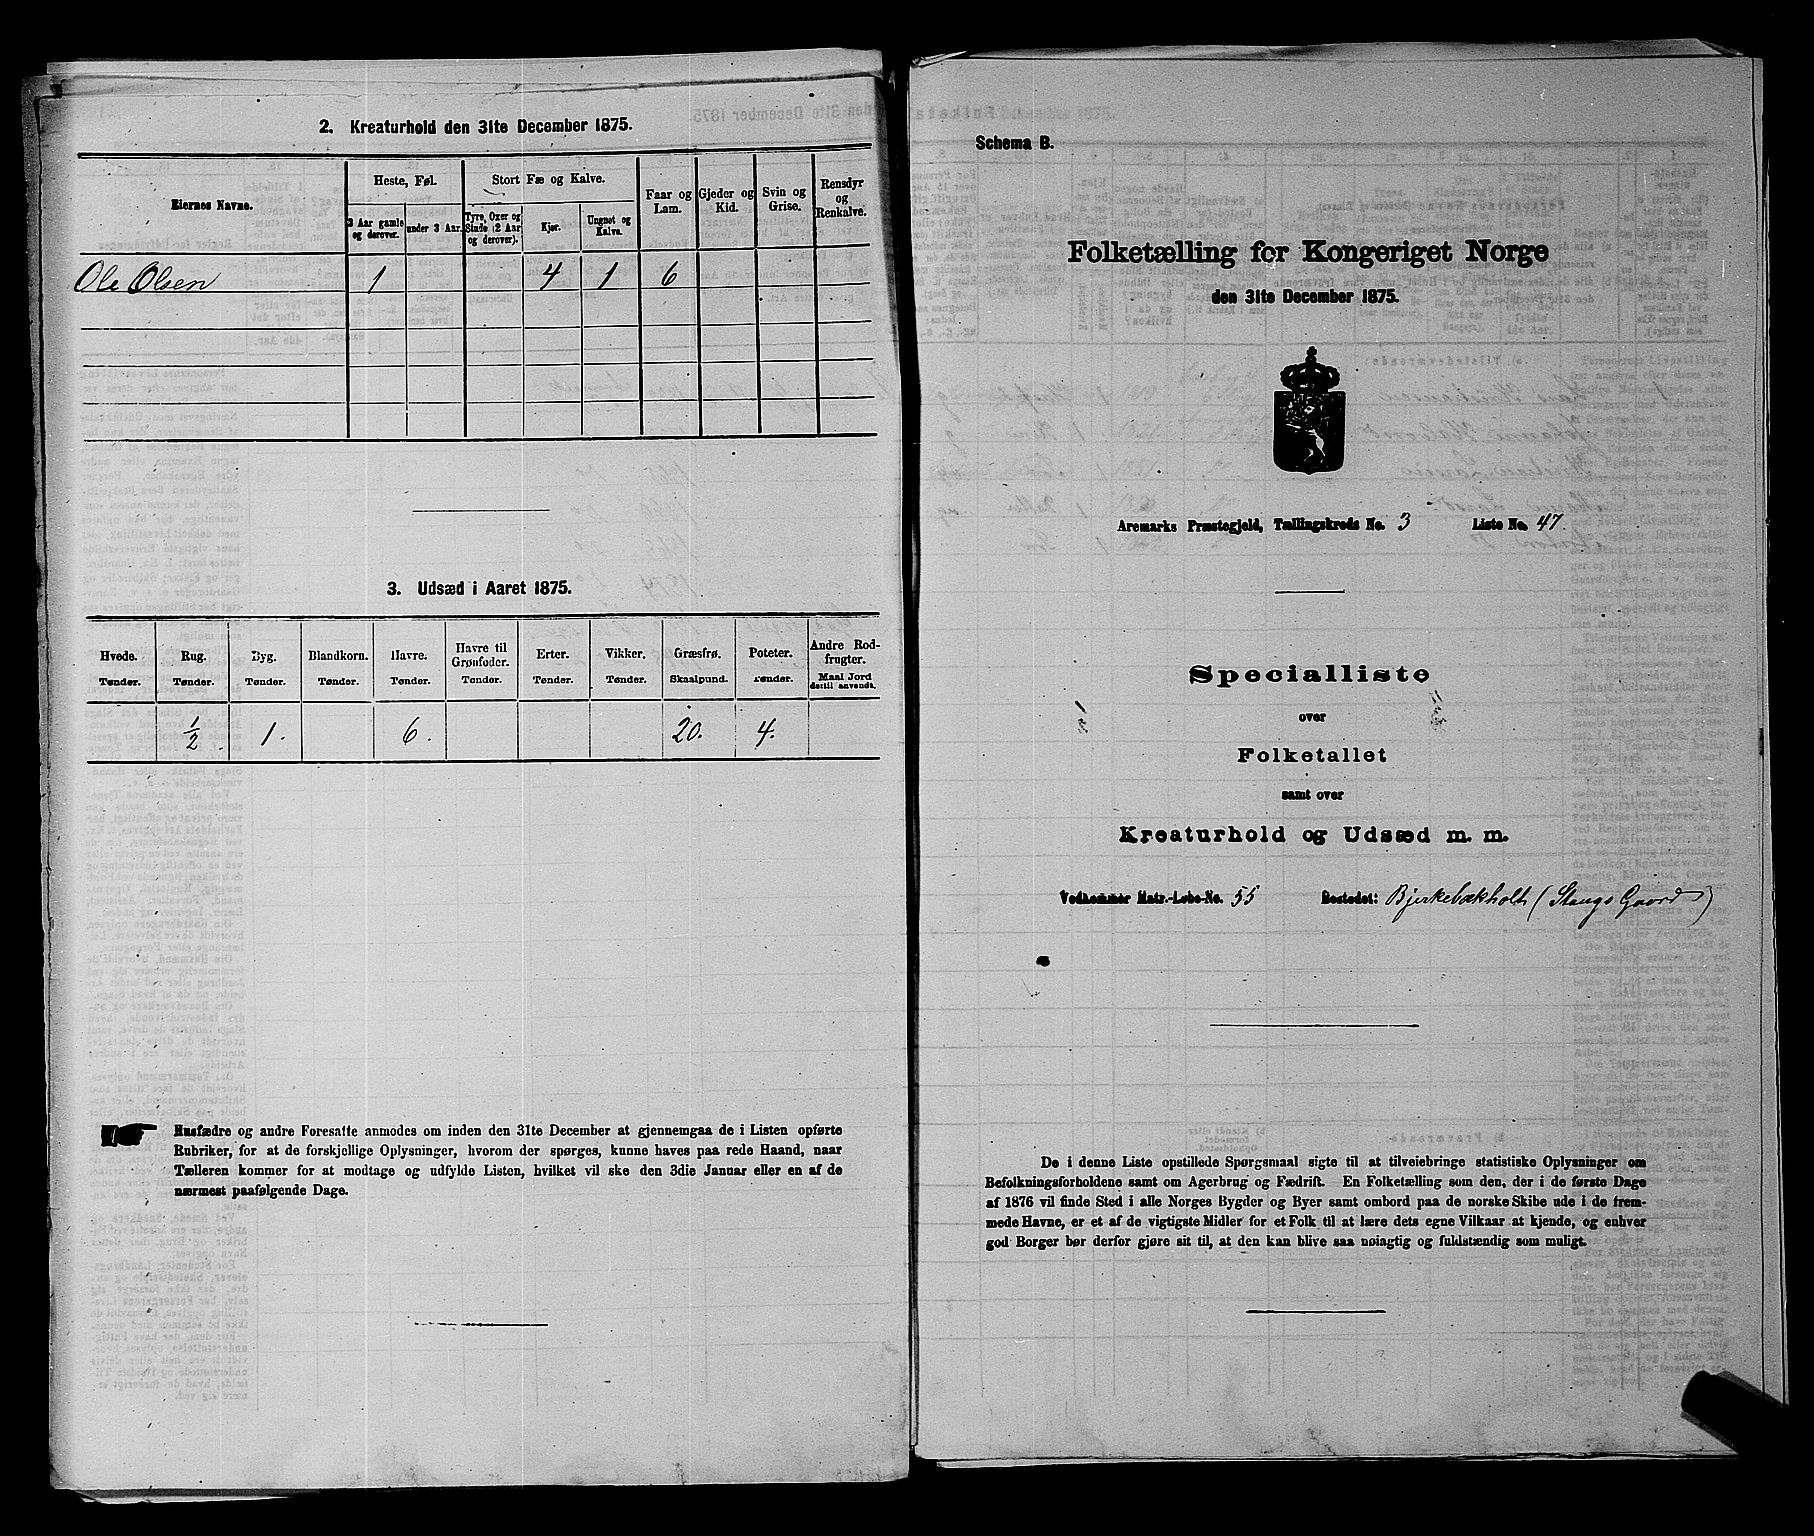 2. Kreaturhold den 31te December 1875.
Eiernes Navne.
Heste, Føl.
3 Aar gamle og derover.
under 3 Aar.
Stort Fæ og Kalve.
Tyre, Oxer og Stude (2 Aar og derover).
Kjør.
Ungnøt og Kalve.
Faar og Lam.
Gjeder og Kid.
Svin og Grise.
Rensdyr og Renkalve.
Ole Olsen 1 4 1 6
3. Udsæd i Aaret 1875.
Hvede. Rug. Byg. Blandkorn. Havre. Havre til Grønfoder. Erter. Vikker. Græsfrø. Poteter. Andre Rodfrugter.
Tønder. Tønder. Tønder. Tønder. Tønder. Tønder. Tønder. Tønder. Skaalpund. Tønder. Maal Jord dertil anvendt.
1/2 1. 6. 20. 4.
Husfædre og andre Foresatte anmodes om inden den 31te December at gjennemgaa de i Listen opførte
Rubriker, for at de forskjellige Oplysninger, hvorom der spørges, kunne haves paa rede Haand, naar
Tælleren kommer for at modtage og udfylde Listen, hvilket vil ske den 3die Januar eller en af de
nærmest paafølgende Dage.
Schema B.
Folketælling for Kongeriget Norge
den 31te December 1875.
Aremarks Præstegjeld, Tællingskreds No. 3 Liste No. 47.
Specialliste
over
Folketallet
samt over
Kreaturhold og Udsæd m. m.
Vedkommer Matr.-Løbe-No. 55 Bostedet: Bjerkebækholt (Stangs Gaard)
De i denne Liste opstillede Spørgsmaal sigte til at tilveiebringe statistiske Oplysninger om
Befolkningsforholdene samt om Agerbrug og Fædrift. En Folketælling som den, der i de første Dage
af 1876 vil finde Sted i alle Norges Bygder og Byer samt ombord paa de norske Skibe ude i de frem-
mede Havne, er et af de vigtigste Midler for et Folk til at lære dets egne Vilkaar at kjende, og enhver
god Borger bør derfor gjøre sit til, at den kan blive saa nøiagtig og fuldstændig som muligt.